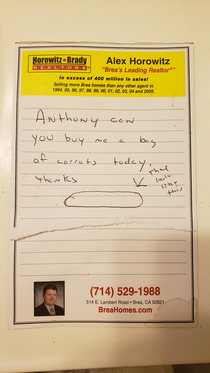 Horowitz-Brady
REALTORS
Alex Horowitz
"Brea's Leading Realtor"
In excess of 400 million in sales!
Selling more Brea homes than any other agent in
1994, 95, 96, 97, 98, 99, 00, 01, 02, 03, 04 and 2005.
Anthony can
you buy me a bag
of carrots today,
thanks
that
look
like
this
(714) 529-1988
514 E. Lambert Road • Brea, CA 92821
BreaHomes.com